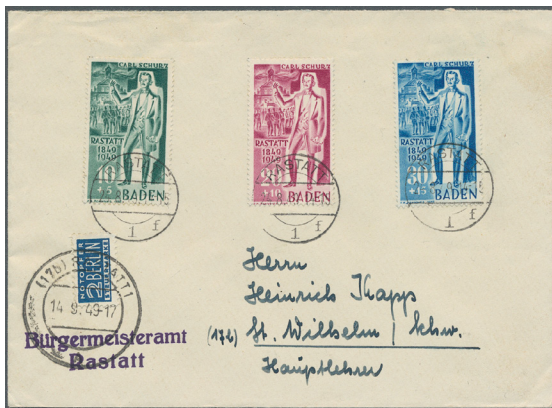 CARL SCHURZ
RASTATT
1849
1949
10
+5
BADEN
CARL SCHURZ
RASTATT
1849
1949
20
BADEN
CARL SCHURZ
RASTATT
1849
1949
30
+15
BADEN
RASTATT
1 f
1 f
1 f
NOTOPFER
2 BERLIN
STEUERMARKE
(17b) RASTATT 1
14.9.49-17
Bürgermeisteramt
Rastatt
Herrn
Heinrich Kapp
(17b) St. Wilhelm / Schw.
Hauptlehrer